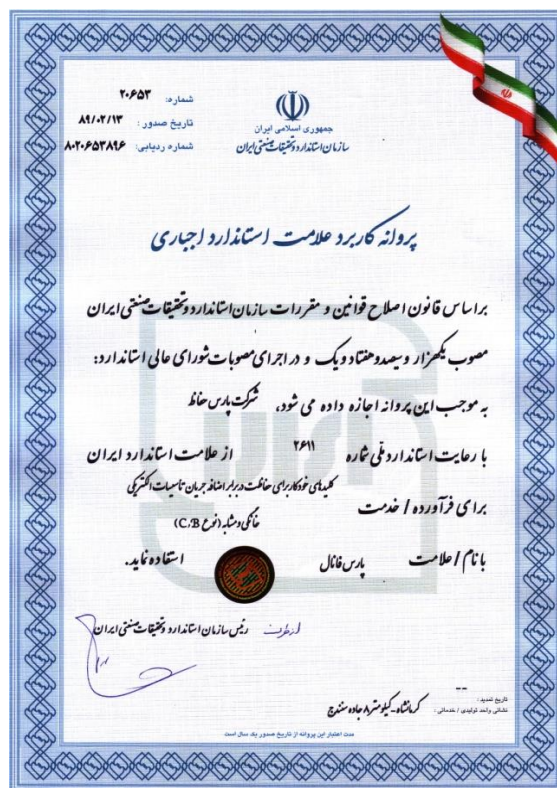 شماره: ۲۰۶۵۳
تاریخ صدور: ۸۹/۰۲/۱۳
شماره ردیابی: ۸۰۲۰۶۵۳۸۹۶
جمهوری اسلامی ایران
سازمان استاندارد و تحقیقات صنعتی ایران
پروانه کاربرد علامت استاندارد اجباری
براساس قانون اصلاح قوانین و مقررات سازمان استاندارد و تحقیقات صنعتی ایران
مصوب یکهزار و سیصد و هفتاد و یک و در اجرای مصوبات شورای عالی استاندارد:
به موجب این پروانه اجازه داده می شود، شرکت پارس حفاظ
با رعایت استاندارد ملی شماره ۲۶۱۱ از علامت استاندارد ایران
برای فرآورده / خدمت کلیدهای خودکار برای حفاظت در برابر اضافه جریان تاسیسات الکتریکی
خانگی و مشابه (نوع C،B)
با نام / علامت پارس فانال استفاده نماید.
از طرف رئیس سازمان استاندارد و تحقیقات صنعتی ایران
تاریخ تمدید: --
نشانی واحد تولیدی / خدماتی: کرمانشاه - کیلومتر ۸ جاده سنندج
مدت اعتبار این پروانه از تاریخ صدور یک سال است